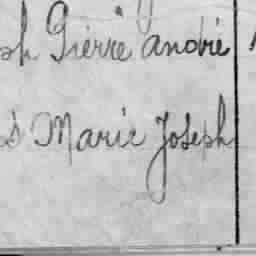 ph Pierre andré
s Marie Joseph